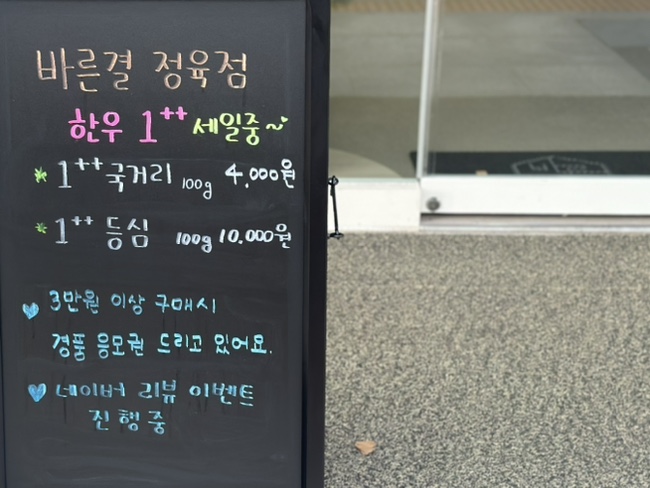 바른결 정육점
한우 1++ 세일중~
* 1++ 국거리 100g 4,000원
* 1++ 등심 100g 10,000원
♥ 3만원 이상 구매시
경품 응모권 드리고 있어요.
♥ 네이버 리뷰 이벤트
진행중